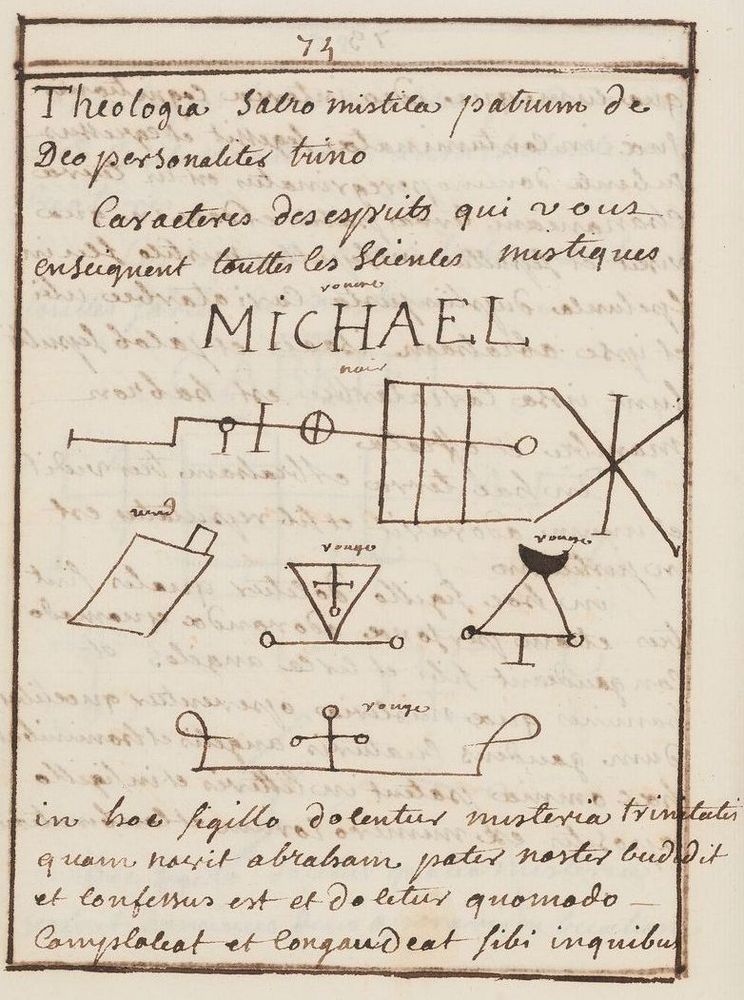 74
Theologia Sacro mistica patrum de
Deo personaliter trino
Caracteres des esprits qui vous
enseignent touttes les Sciences mistiques
MICHAEL
noir
rouge
rouge
rouge
in hoc sigillo docentur misteria trinitatis
quam novit abraham pater noster
et confessus est et docetur quomodo
complaceat et congaudeat sibi in quibus